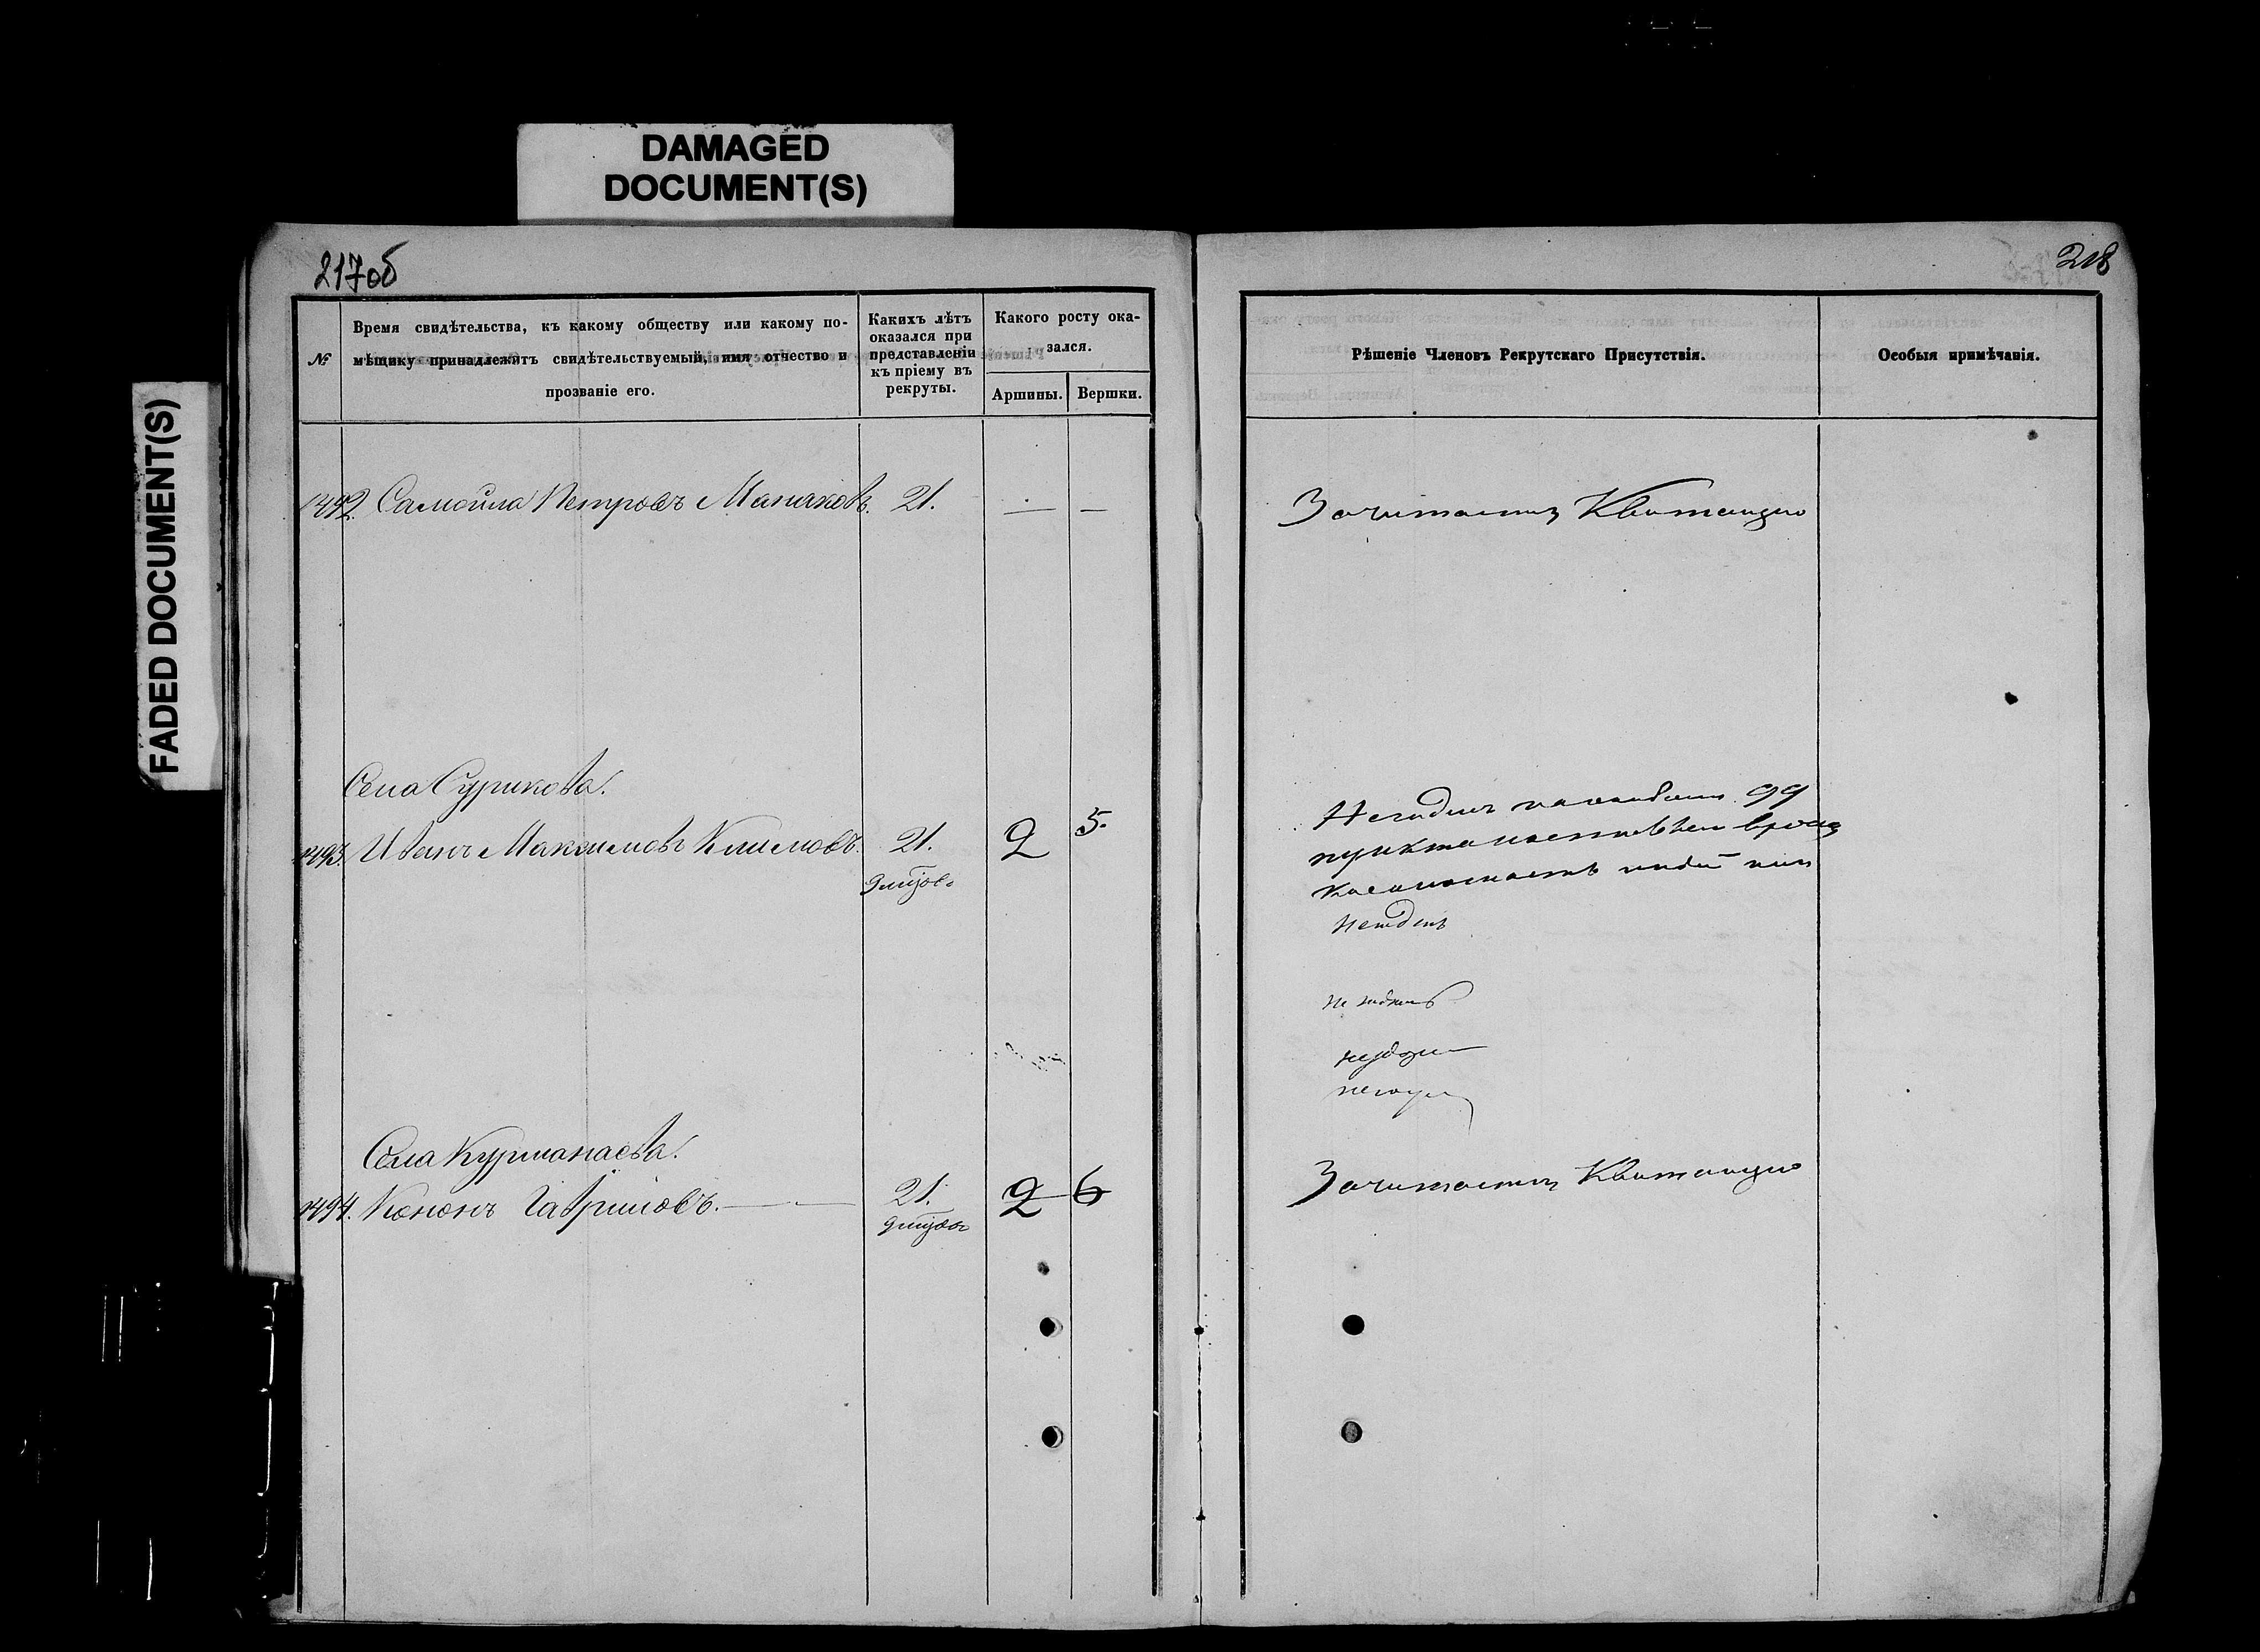 DAMAGED
DOCUMENT(S)
FADED DOCUMENT(S)
217об
№
Время свидѣтельства, къ какому обществу или какому по-
мѣщику принадлежитъ свидѣтельствуемый, имя отчество и
прозваніе его.
Какихъ лѣтъ
оказался при
представленіи
къ пріему въ
рекруты.
Какого росту ока-
зался.
Аршины. Вершки.
1492. Самойла Петровъ Манаковъ. 21. — —
Села Сурикова.
1493. Иванъ Максимовъ Климовъ. 21. 2 5.
Села Курманаева.
1494. Кононъ Гавриловъ. — 21. 2 6
218
Рѣшеніе Членовъ Рекрутскаго Присутствія.
Особыя примѣчанія.
Зачитается Квитанцію
Негоденъ 99
пункта
негоденъ
Зачитается Квитанцію